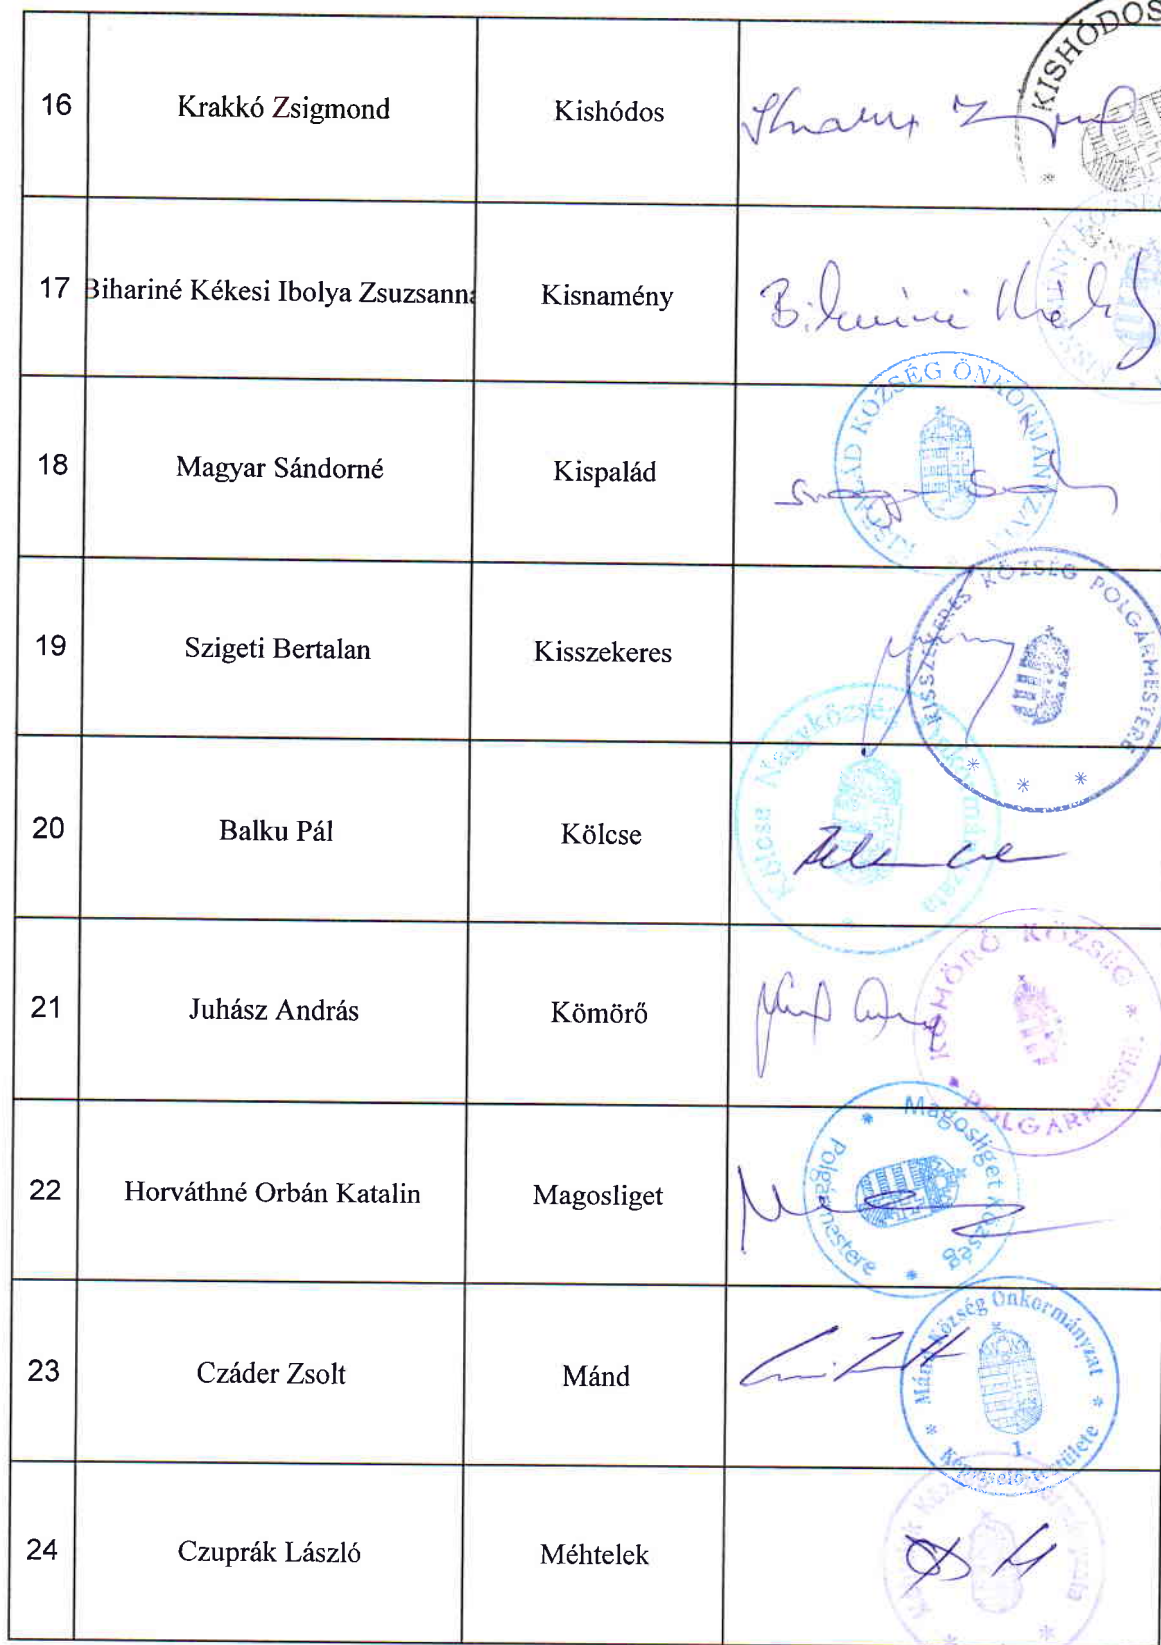 16 Krakkó Zsigmond Kishódos
KISHÓDOS
17 Bihariné Kékesi Ibolya Zsuzsanna Kisnamény
18 Magyar Sándorné Kispalád
KISPALÁD KÖZSÉG ÖNKORMÁNYZATA
19 Szigeti Bertalan Kisszekeres
KISSZEKERES KÖZSÉG POLGÁRMESTERE
20 Balku Pál Kölcse
Kölcse Nagyközség Önkormányzata
21 Juhász András Kömörő
KÖMÖRŐ KÖZSÉG POLGÁRMESTERE
22 Horváthné Orbán Katalin Magosliget
Magosliget Község Polgármestere
23 Czáder Zsolt Mánd
Mánd Község Önkormányzat Képviselő-testülete 1.
24 Czuprák László Méhtelek